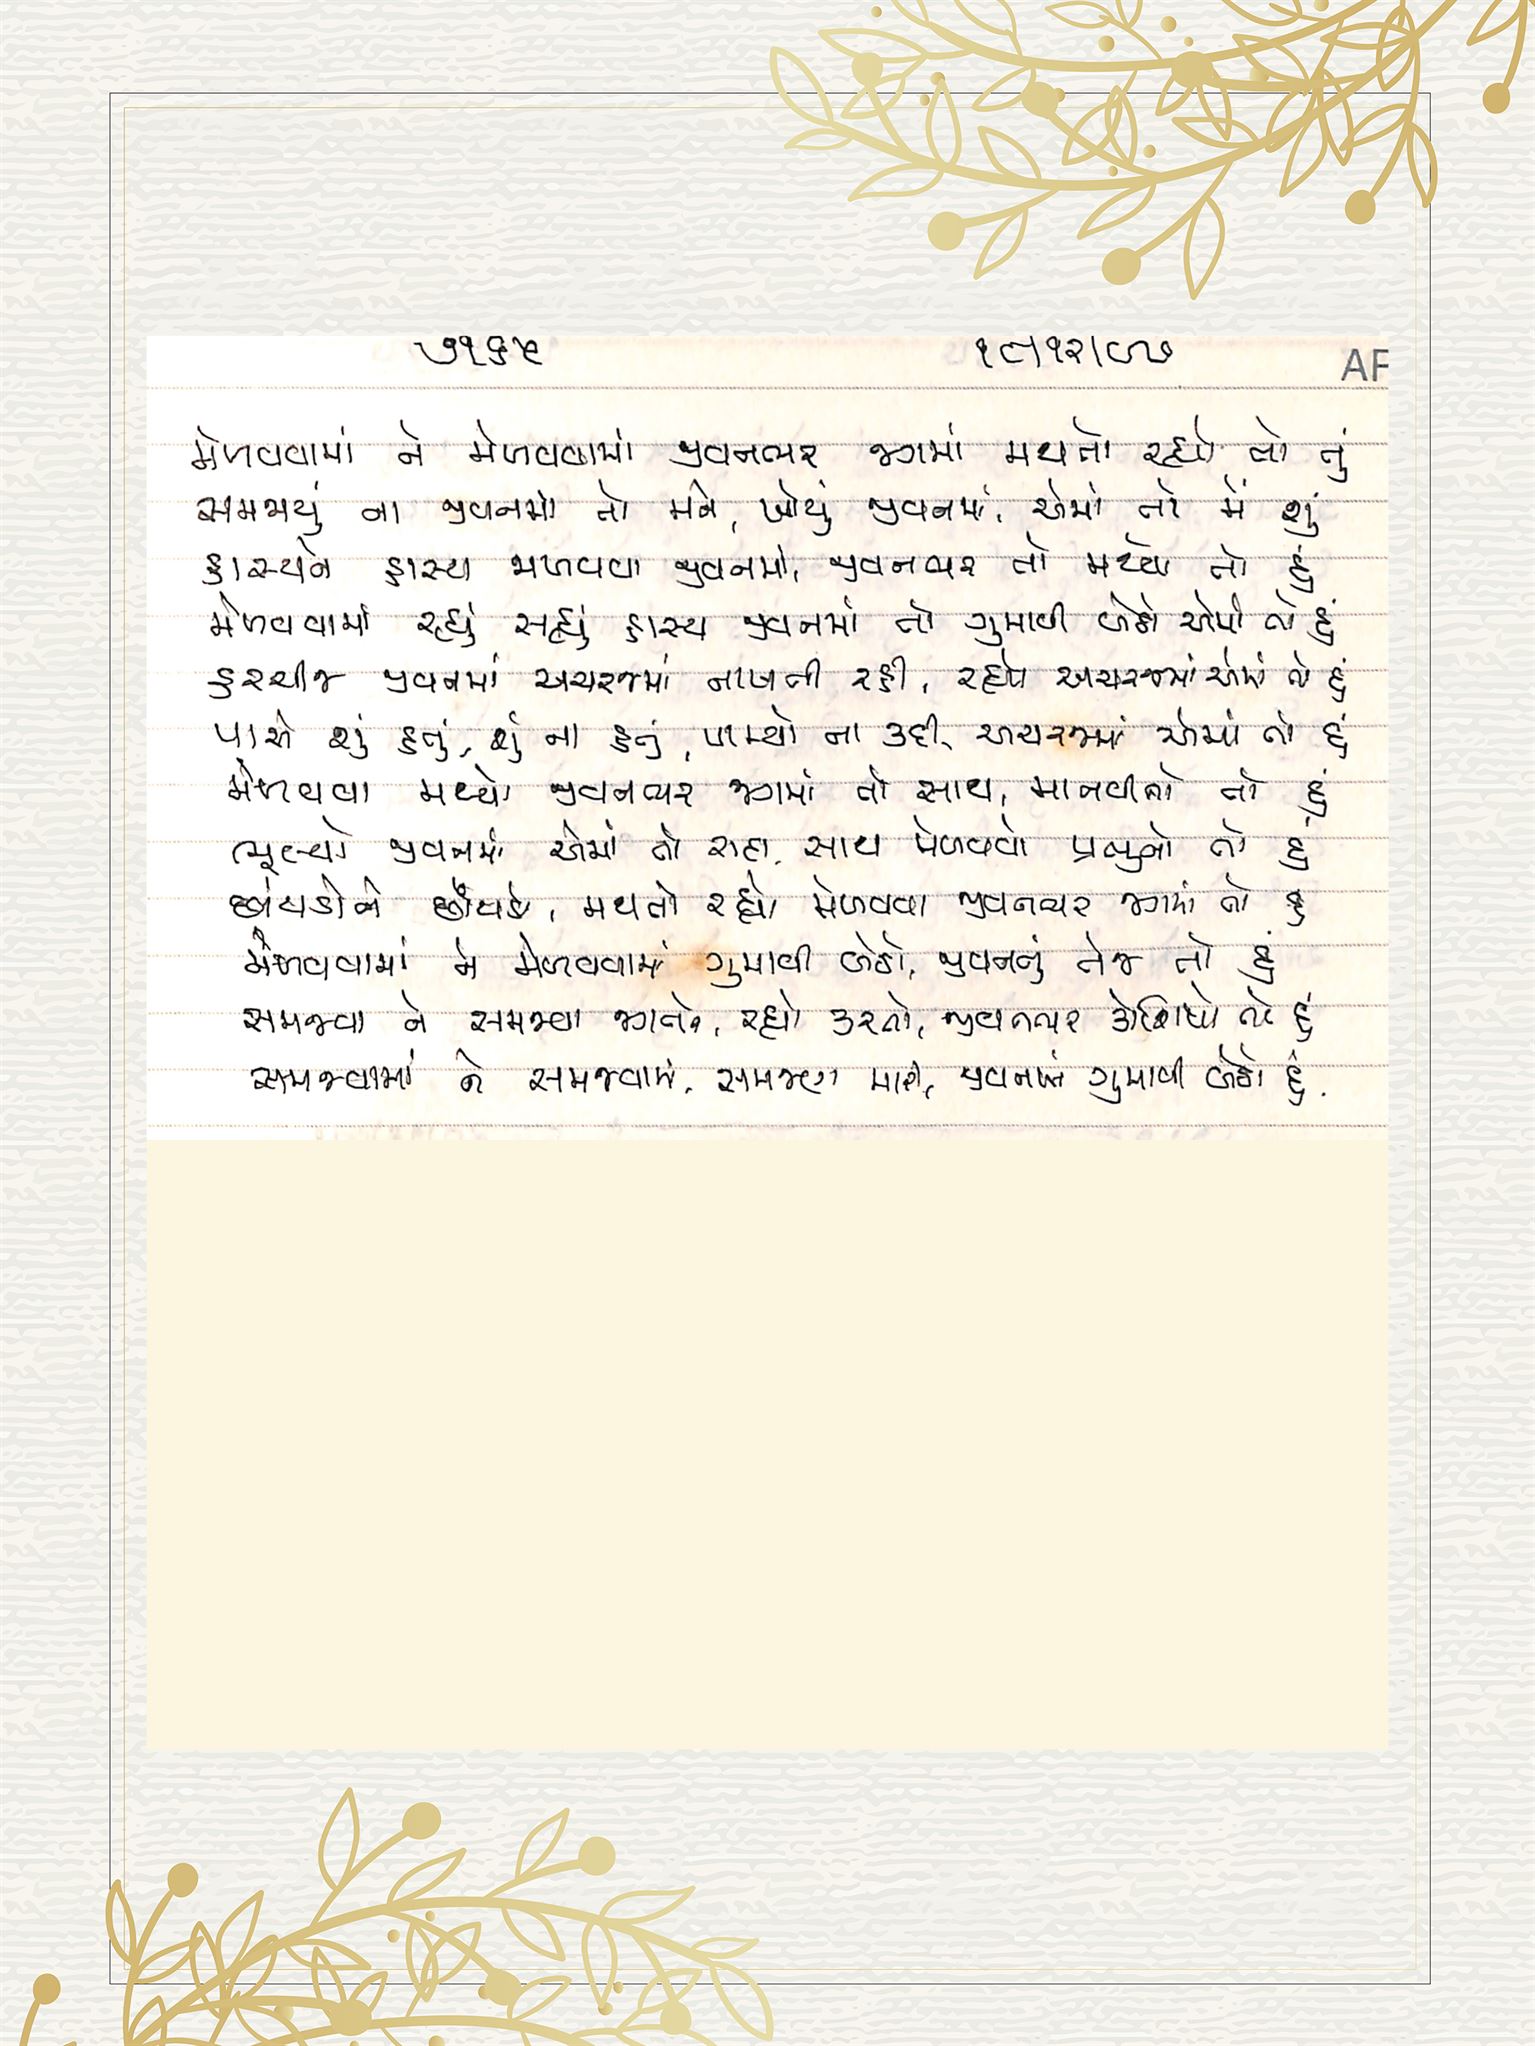 ૭૧૬૫ ૧૯/૧૨/૯૭ AF
મેળવવામાં ને મેળવવામાં જીવનભર જગમાં મથતો રહ્યો તો તું
સમજાયું ના જીવનમાં તો મને, ખોયું જીવનમાં, એમાં તો મેં શું
હાસ્યને હાસ્ય મળવવા જીવનમાં, જીવનભર તો મથ્યો તો હું
મેળવવામાં રહ્યું સહ્યું હાસ્ય જીવનમાં તો ગુમાવી બેઠો એમાં તો હું
હરચીજ જીવનમાં અચરજમાં નાખતી રહી, રહ્યો અચરજમાં એમાં તો હું
પાસે શું હતું, શું ના હતું, પામ્યો ના કદી, અચરજમાં એમાં તો હું
મેળવવા મથ્યો જીવનભર જગમાં તો સાથ, માનવીનો તો હું
ભૂલ્યો જીવનમાં એમાં તો સદા, સાથ મેળવવો પ્રભુનો તો હું
છાંયડાને છાંયડા, મથતો રહ્યો મેળવવા જીવનભર જગમાં તો હું
મેળવવામાં ને મેળવવામાં ગુમાવી બેઠો, જીવનનું તેજ તો હું
સમજવા ને સમજવા જગને, રહ્યો કરતો, જીવનભર કોશિશો તો હું
સમજવામાં ને સમજવામાં, સમજણ મારી, જીવનમાં ગુમાવી બેઠો હું.